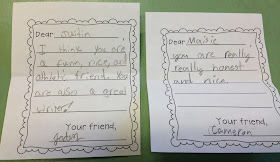 Dear Justin,
I think you are
a funny, nice, and
athletic friend. You
are also a great
writer!
Your friend,
Jadon
Dear Maisie,
you are really
really honest
and nice
Your friend,
Cameron